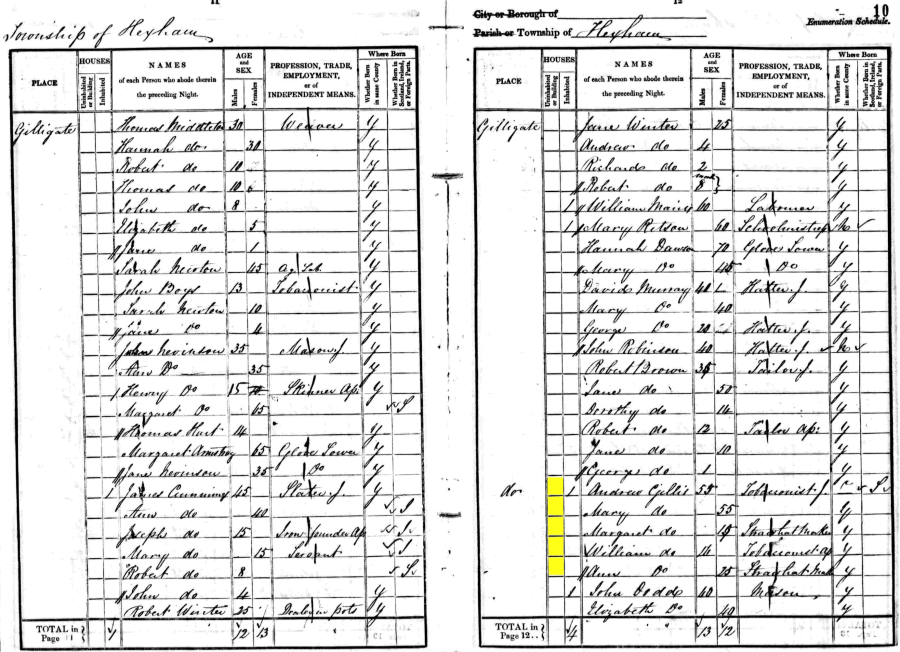 11
Township of Hexham
PLACE
HOUSES
Uninhabited or Building
Inhabited
NAMES
of each Person who abode therein the preceding Night.
AGE and SEX
Males
Females
PROFESSION, TRADE, EMPLOYMENT, or of INDEPENDENT MEANS.
Where Born
Whether Born in same County
Whether Born in Scotland, Ireland, or Foreign Parts.
Gilligate Thomas Middleton 30 Weaver Y
Hannah do 30 Y
Robert do 10 Y
Thomas do 10 Y
John do 8 Y
Elizabeth do 5 Y
Jane do 1 Y
Sarah Newton 45 Ag. Lab. Y
John Boys 13 Tobacconist Y
Sarah Newton 10 Y
Jane Do 4 Y
Nevinson 35 Mason J. Y
Ann Do 35 Y
1 Henry Do 15 Skinner Ap. Y
Margaret Do 65 S
Thomas Hart 14 Y
Margaret Armstrong 65 Glove Sewer Y
Jane Nevinson 35 Do Y
1 James Cummings 45 J. Y
Ann do 40
Joseph do 15 Iron founder Ap
Mary do 15 Servant
Robert do 8 S
John do 4 Y
Robert Winter 25 Dealer in pots Y
TOTAL in Page 11 1 12 13
12
10
City or Borough of
Enumeration Schedule.
Parish or Township of Hexham
PLACE
HOUSES
Uninhabited or Building
Inhabited
NAMES
of each Person who abode therein the preceding Night.
AGE and SEX
Males
Females
PROFESSION, TRADE, EMPLOYMENT, or of INDEPENDENT MEANS.
Where Born
Whether Born in same County
Whether Born in Scotland, Ireland, or Foreign Parts.
Gilligate Jane Winter 25 Y
Andrew do 4 Y
Richard do 2 Y
Robert do 8 Y
1 William 60 Labourer Y
1 Mary Ritson 60 Schoolmistress N
Hannah Dawson 70 Glove Sewer Y
Mary Do 45 Do Y
David Murray 40 Hatter J. Y
Mary Do 40 Y
George Do 20 Hatter J. Y
John Robinson 40 Hatter J. N
Robert Brown 35 Tailor J. Y
Jane do 50 Y
Dorothy do 14 Y
Robert do 12 Tailor Ap. Y
Jane do 10 Y
George do 1 Y
do 1 Andrew Gillis 55 Tobacconist J. S
Mary do 55 Y
Margaret do 15 Straw hat Maker Y
William do 14 Tobacconist Ap Y
Ann Do 25 Straw hat Mak Y
1 John Dodds 60 Mason Y
Elizabeth Do 40 Y
TOTAL in Page 12 4 13 12